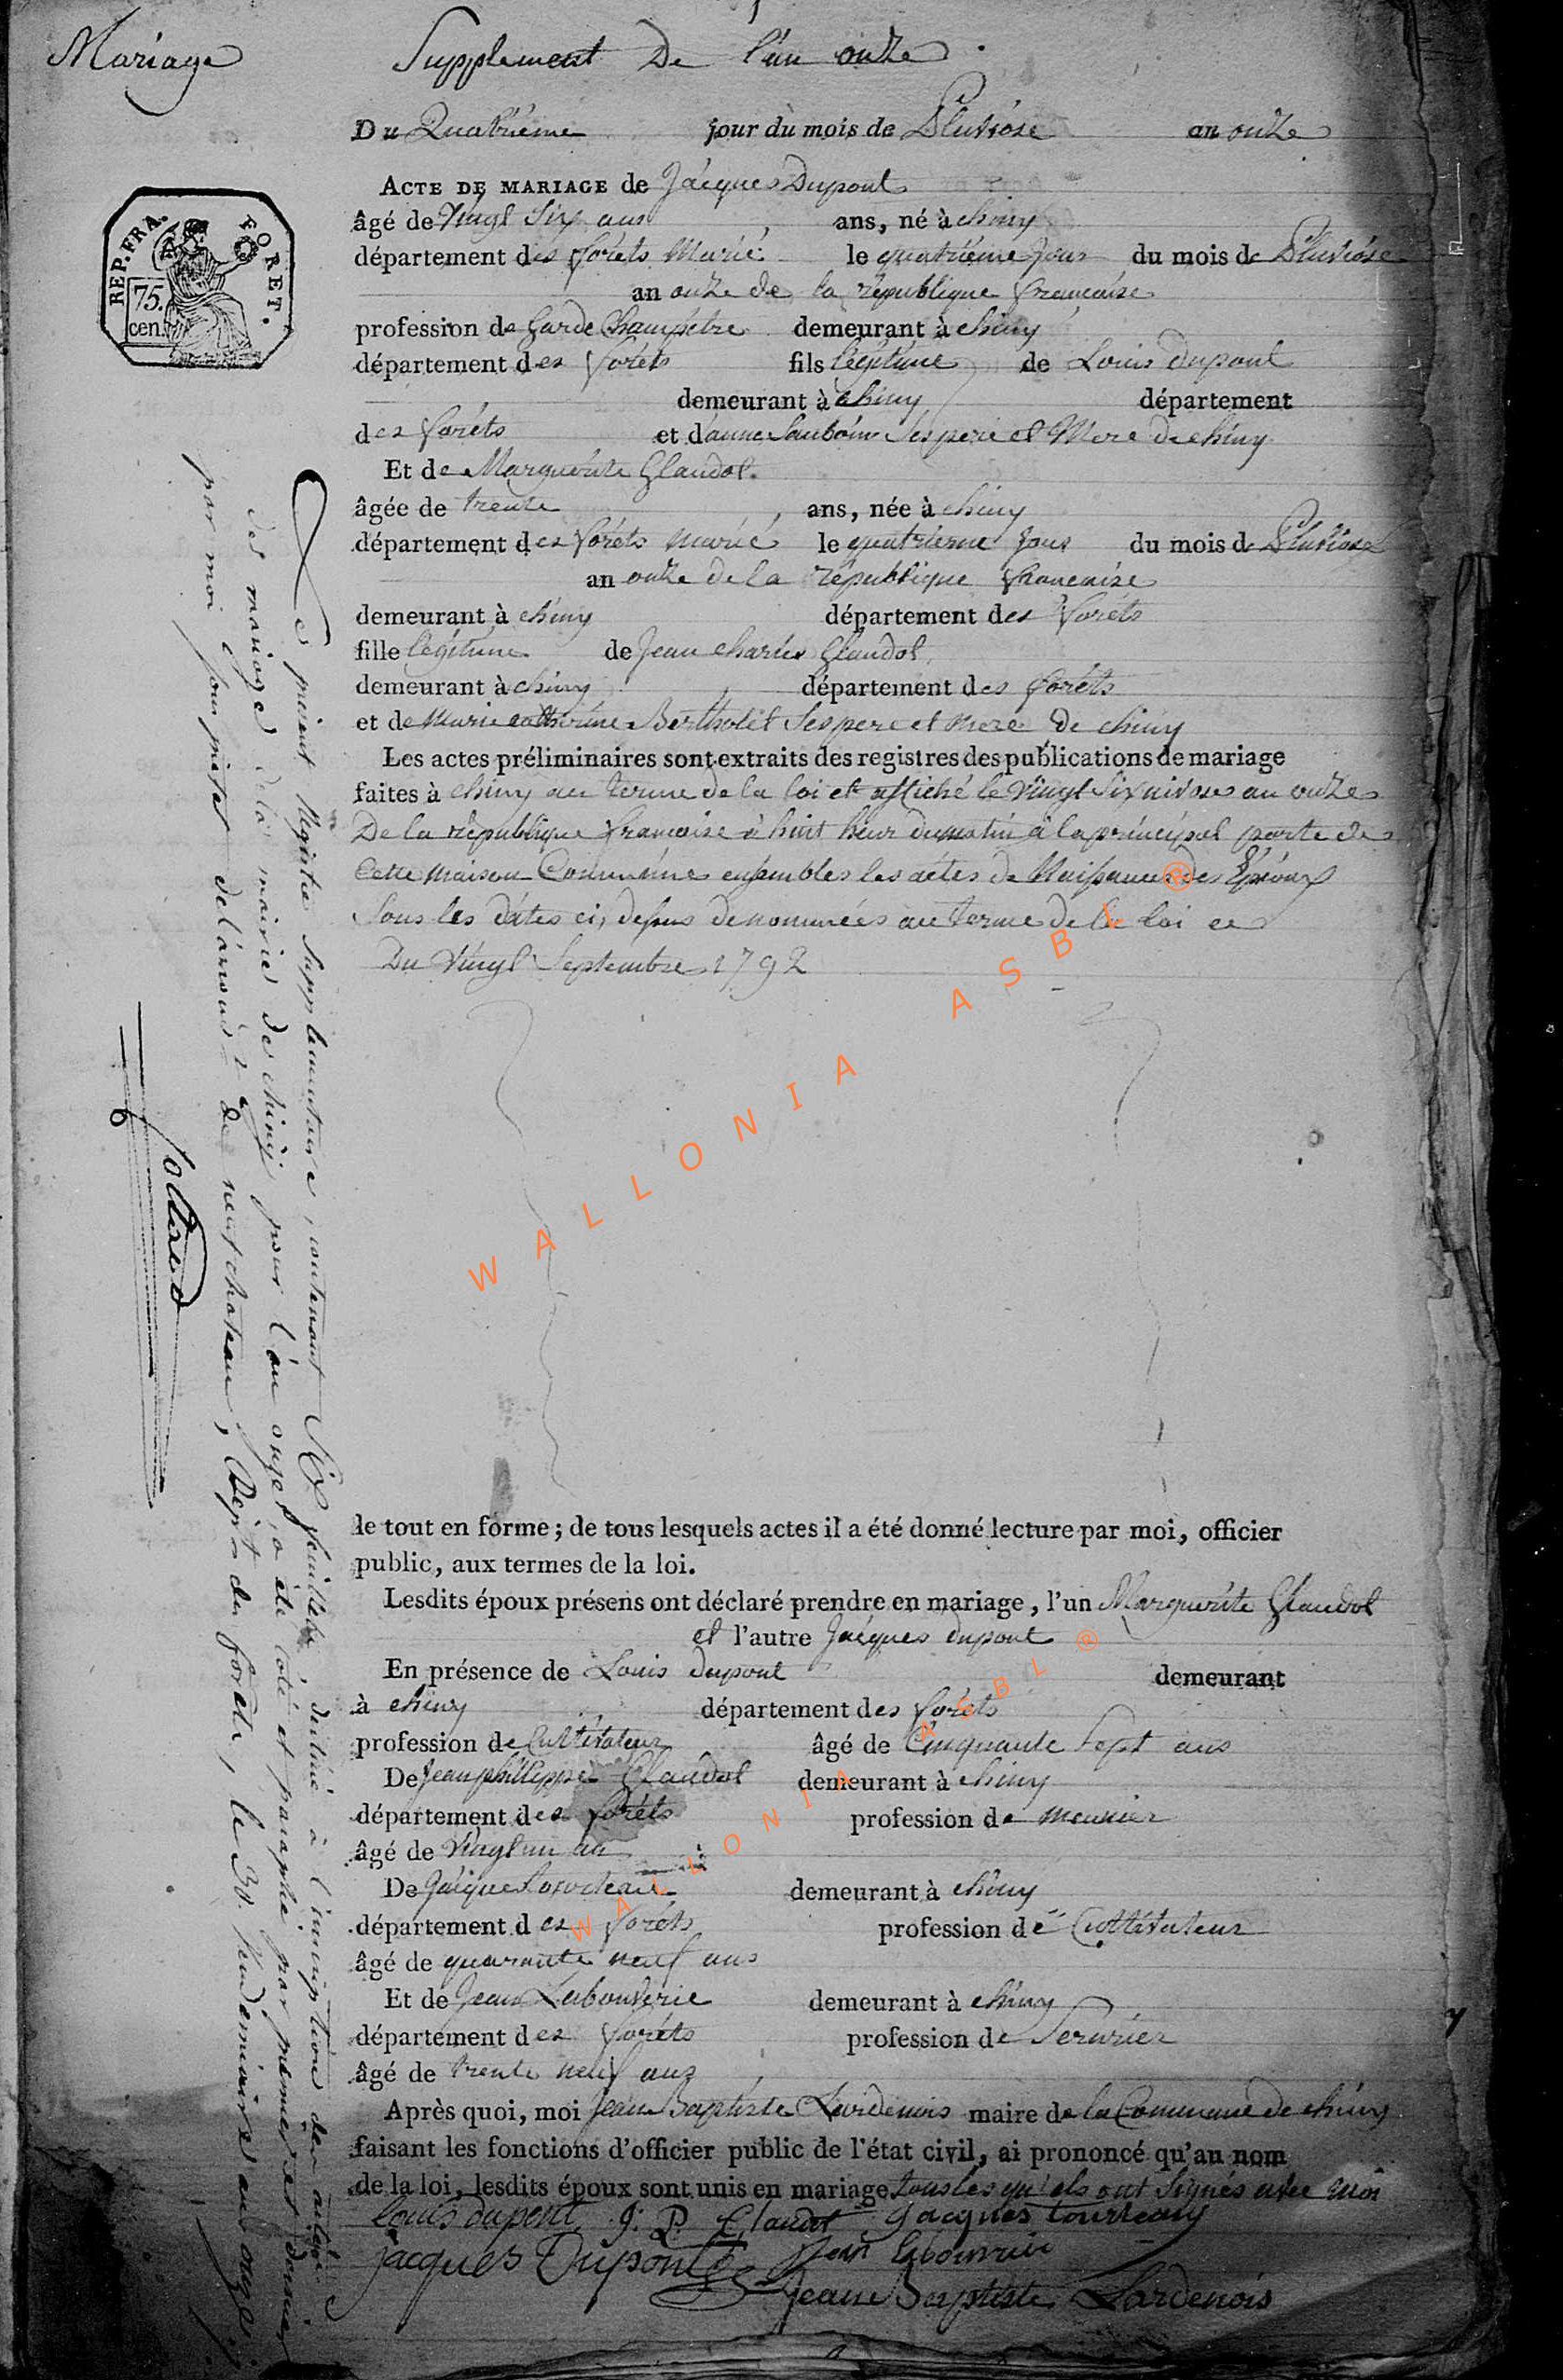 Mariage
Supplement De l'an onze
Du Quatriéme jour du mois de Pluviose an onze
ACTE DE MARIAGE de Jacques Dupont
âgé de Vingt Six ans ans, né à chiny
département des foréts Marié le quatriéme jour du mois de Pluviose
an onze de la république francaise
profession de Garde Champetre demeurant à chiny
département des foréts fils légitime de Louis dupont
demeurant à chiny département
des foréts et d'anne Ses pere et Mere de chiny
Et de Marguerite Glaudot
âgée de trente ans, née à chiny
département des foréts marié le quatrieme jour du mois de Pluviose
an onze de la république francaise
demeurant à chiny département des foréts
fille légitime de Jean charles Glaudot
demeurant à chiny département des foréts
et de Marie catherine Bertholet Ses pere et mere de chiny
Les actes préliminaires sont extraits des registres des publications de mariage
faites à chiny au terme de la loi et affiché le Vingt Six nivose an onze
De la république francaise à huit heur du matin à la principal porte de
Cette maison Commune ensembles les actes de Naissance des Epoux
Sous les dates ci, dessus denommées au terme de la loi
Du Vingt Septembre 1792
REP. FRA. FORET.
75.
cen.
Le présent Régistre Supplémentaire, contenant Six feuillets, destiné à l'inscription des actes
des mariages de la mairie de chiny pour l'an onze, a été coté et paraphé par premier et dernier
par moi Sous préfet de l'arrond.t de neufchateau, Dép.t des forêts, le 30. Vendémiaire an onze.
le tout en forme ; de tous lesquels actes il a été donné lecture par moi, officier
public, aux termes de la loi.
Lesdits époux présens ont déclaré prendre en mariage, l'un Marguerite Glaudot
et l'autre Jacques dupont
En présence de Louis dupont demeurant
à chiny département des foréts
profession de Cultivateur âgé de Cinquante Sept ans
De Jean philippe Glaudot demeurant à chiny
département des foréts profession de meunier
âgé de Vingt un an
De Jacque demeurant à chiny
département des foréts profession de Cultivateur
âgé de quarante neuf ans
Et de Jean Labouverie demeurant à chiny
département des foréts profession de Serurier
âgé de trente neuf ans
Après quoi, moi Jean Baptiste Lardenois maire de la Commune de chiny
faisant les fonctions d'officier public de l'état civil, ai prononcé qu'au nom
de la loi, lesdits époux sont unis en mariage tous les quels ont Signés avec moi
Louis dupont J. P. Claudot Jacques tourteau
Jacques Dupont Jean labouverie
Jean Baptiste Lardenois
WALLONIA ASBL ®
WALLONIA ASBL ®